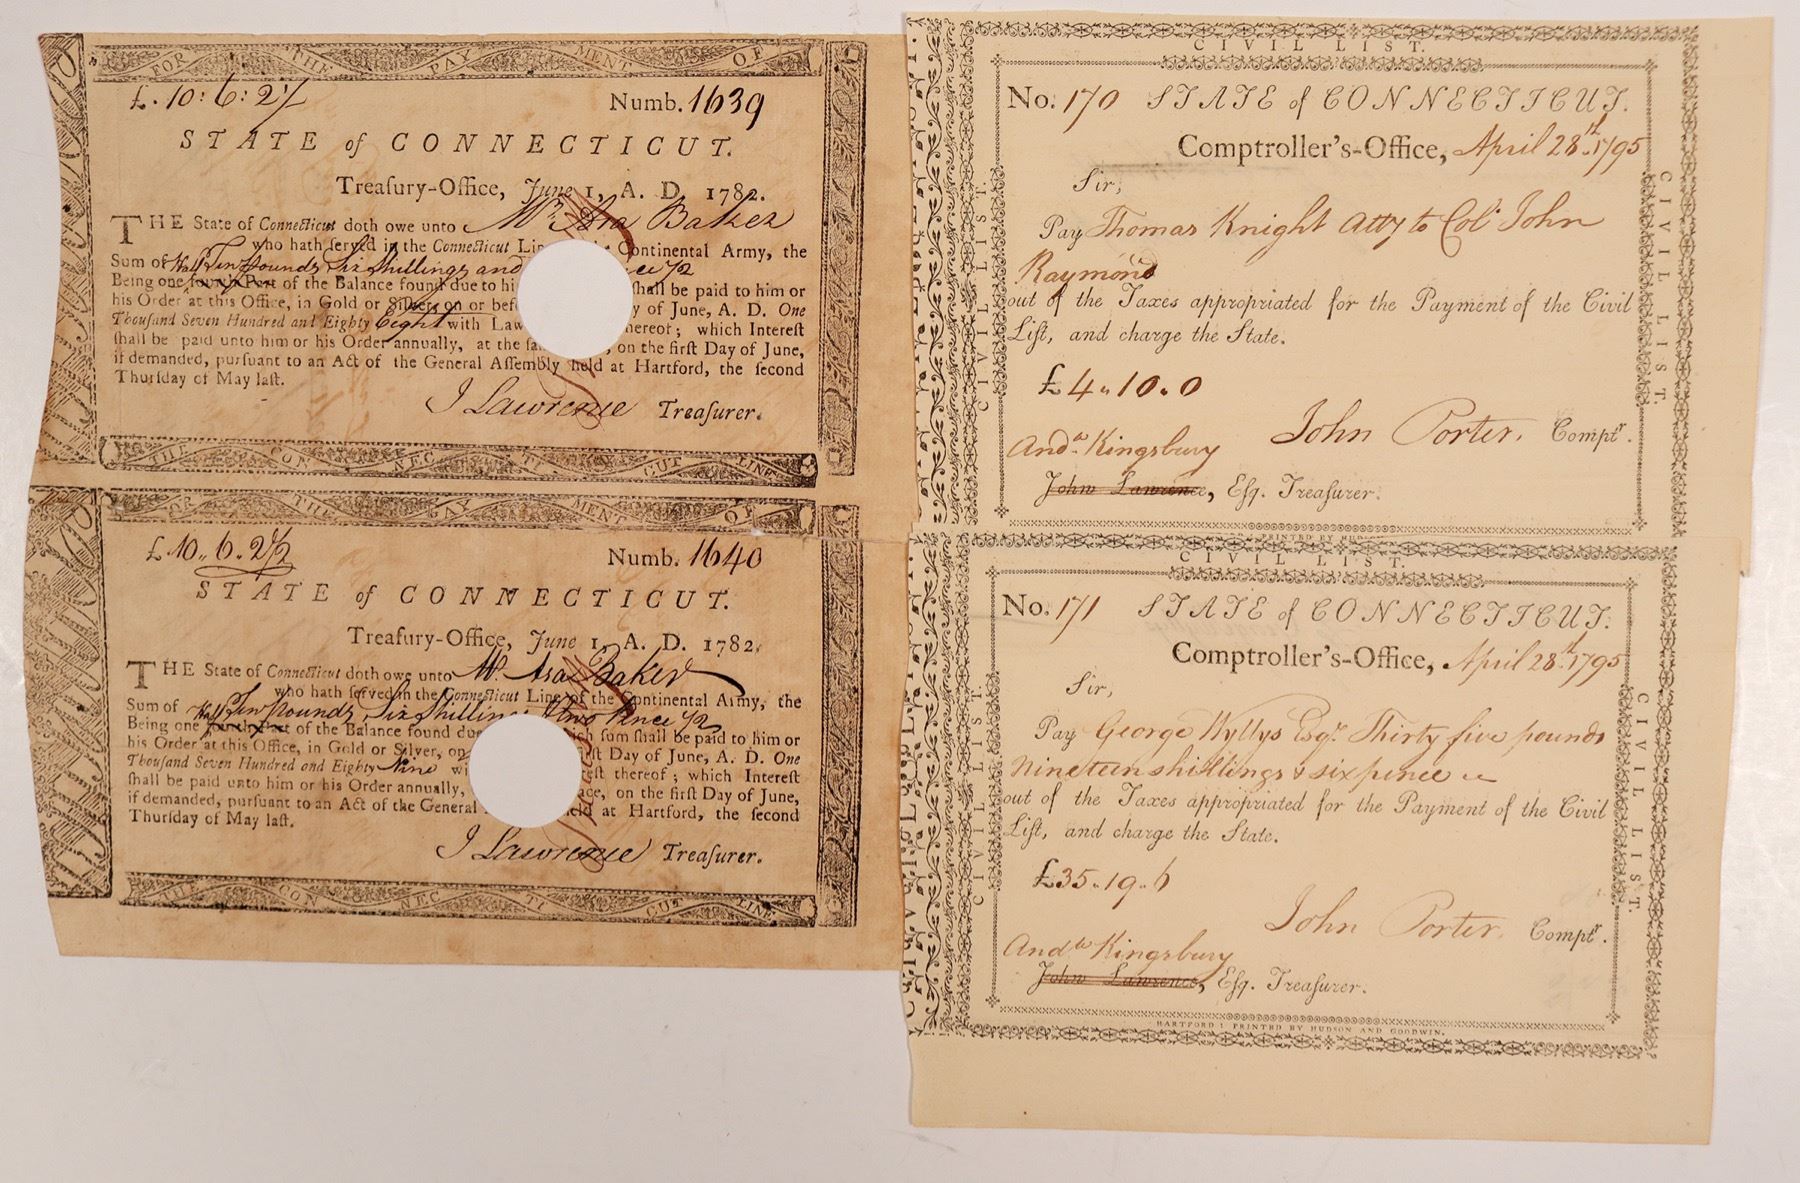 FOR THE PAY MENT OF
£. 10: 6: 2½ Numb. 1639
STATE of CONNECTICUT.
Treaſury-Office, June 1, A. D. 1782.
THE State of Connecticut doth owe unto Mr. Asa Baker
who hath ſerved in the Connecticut Line Continental Army, the
Sum of Ten Pounds Six Shillings and ½
Being one Half fourth Part of the Balance found due to hi ſhall be paid to him or
his Order at this Office, in Gold or Silver, on or bef y of June, A. D. One
Thouſand Seven Hundred and Eighty Eight with Law hereof; which Intereſt
ſhall be paid unto him or his Order annually, at the ſa , on the firſt Day of June,
if demanded, purſuant to an Act of the General Aſſembly held at Hartford, the ſecond
Thurſday of May laſt.
J Lawrence Treaſurer.
THE CON NEC TI CUT LINE
FOR THE PAY MENT OF
£ 10.. 6.. 2½ Numb. 1640
STATE of CONNECTICUT.
Treaſury-Office, June 1, A. D. 1782.
THE State of Connecticut doth owe unto Mr. Asa Baker
who hath ſerved in the Connecticut Line of the Continental Army, the
Sum of Ten Pounds Six Shillings & two Pence ½
Being one Half fourth Part of the Balance found due ich ſum ſhall be paid to him or
his Order at this Office, in Gold or Silver, on rſt Day of June, A. D. One
Thouſand Seven Hundred and Eighty Nine wi eſt thereof; which Intereſt
ſhall be paid unto him or his Order annually, ace, on the firſt Day of June,
if demanded, purſuant to an Act of the General held at Hartford, the ſecond
Thurſday of May laſt.
J Lawrence Treaſurer.
THE CON NEC TI CUT LINE
CIVIL LIST.
No. 170 STATE of CONNECTICUT.
Comptroller's-Office, April 28th 1795
Sir,
Pay Thomas Knight Atty to Col. John
Raymond
out of the Taxes appropriated for the Payment of the Civil
Liſt, and charge the State.
£4.. 10.. 0
John Porter. Comptr.
Andw Kingsbury
John Lawrence, Eſq. Treaſurer.
CIVIL LIST.
CIVIL LIST.
PRINTED BY HUD
CIVIL LIST.
No. 171 STATE of CONNECTICUT.
Comptroller's-Office, April 28th 1795
Sir,
Pay George Wyllys Esqr. Thirty five pounds
Nineteen shillings & sixpence
out of the Taxes appropriated for the Payment of the Civil
Liſt, and charge the State.
£35.. 19.. 6
John Porter. Comptr.
Andw Kingsbury
John Lawrence, Eſq. Treaſurer.
CIVIL LIST.
CIVIL LIST.
HARTFORD: PRINTED BY HUDSON AND GOODWIN.